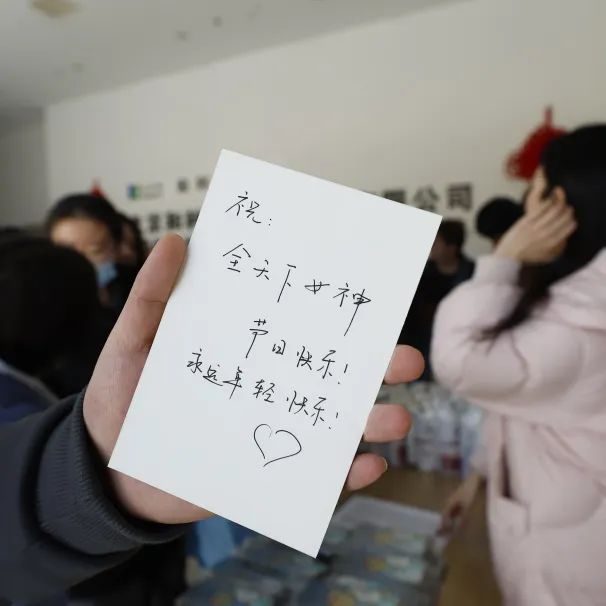 祝:
全天下女神
节日快乐!
永远年轻快乐!
限公司